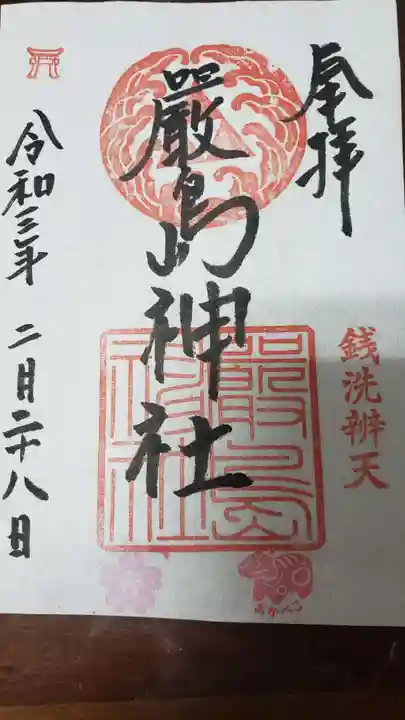 奉拝
銭洗辨天
嚴島神社
嚴島神社
令和三年 二月二十八日